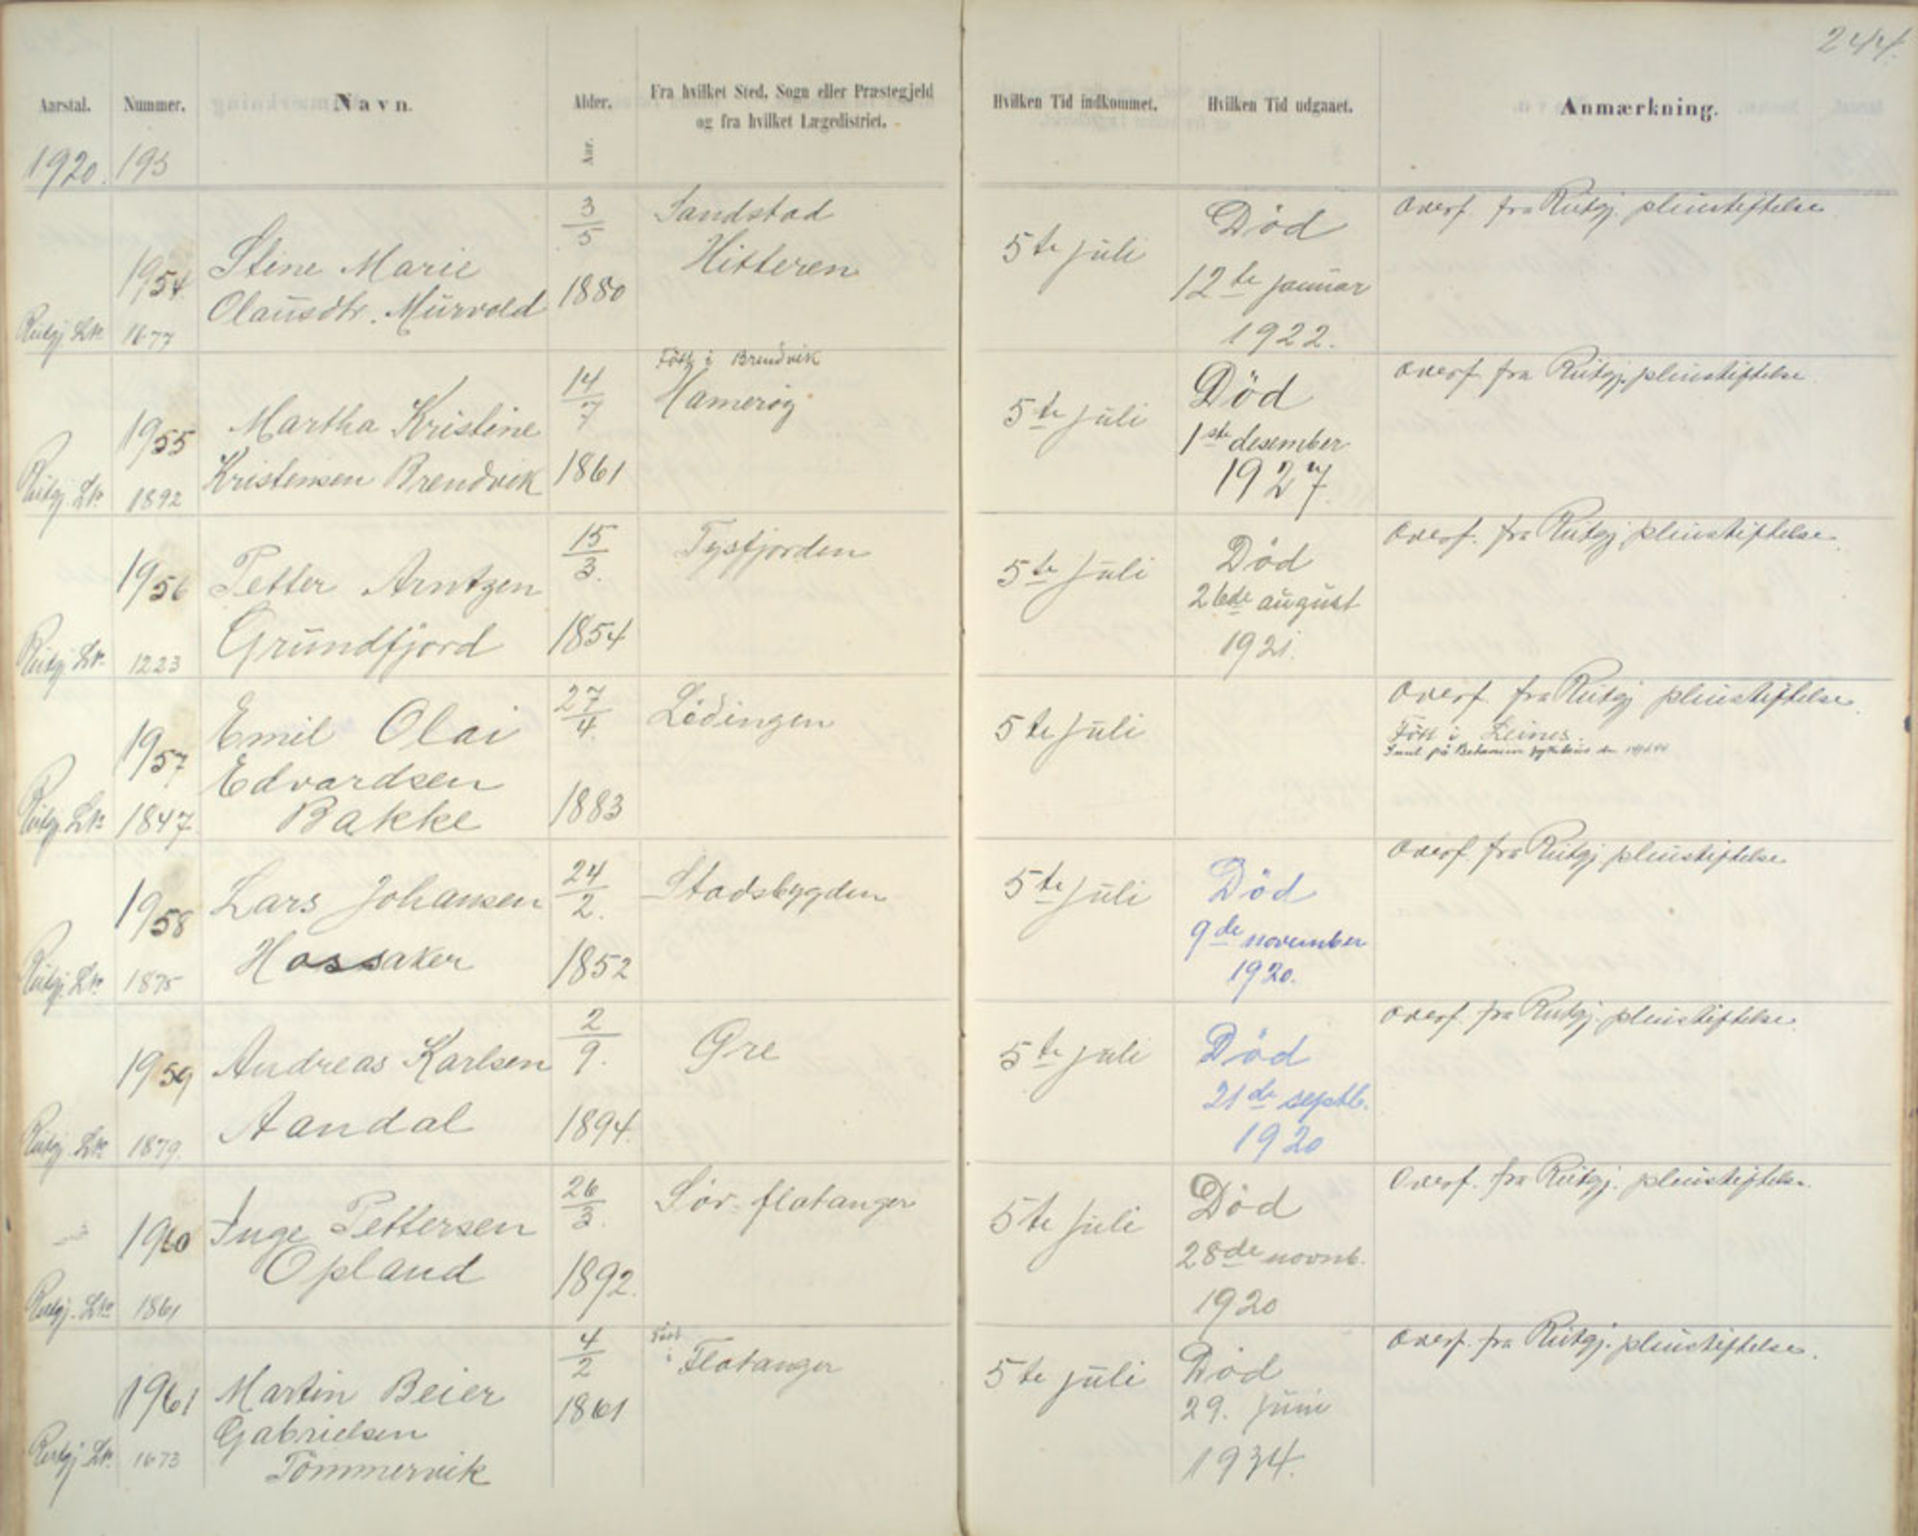 244.
Aarstal. Nummer. Navn. Alder. Fra hvilket Sted, Sogn eller Præstegjeld Hvilken Tid indkommet. Hvilken Tid udgaaet. Anmærkning.
og fra hvilket Lægedistrict.
Aar.
1920. 195
3/5 Sandstad Død Overf. fra Rutgj. pleiestiftelse
1954 Stine Marie Hitteren 5te juli
Olausdtr. Murvold 1880 12te januar
Reitgj Lnr 1677 1922.
Født i Brendvik
14/7 Hamerøy Død Overf. fra Reitgj. pleiestiftelse
1955 Martha Kristine 5te juli 1ste desember
Kristensen Brendvik 1861 1927.
Reitgj. Lnr 1892
15/3. Tysfjorden Død Overf. fra Reitgj pleiestiftelse.
1956 Petter Arntzen 5te juli 26de august
Grundfjord 1854 1921.
Reitgj. Lnr 1223
27/4. Lødingen Overf. fra Reitgj pleiestiftelse.
1957 Emil Olai 5te juli Født i Leines.
Edvardsen
Reitgj. Lnr 1847 Bakke 1883
24/2. Stadsbygden Overf. fra Reitgj. pleiestiftelse
1958 Lars Johansen 5te juli Død
Hossaker 1852 9de november
Reitgj. Lnr 1875 1920.
2/9. Øre Overf. fra Reitgj. pleiestiftelse.
1959 Andreas Karlsen 5te juli Død
Aandal 1894. 21de septb.
Reitgj. Lnr 1879. 1920
26/3. Sør-flatanger Død Overf. fra Reitgj. pleiestiftelse.
1960 Inge Pettersen 5te juli 28de novmb.
Opland 1892. 1920
Reitgj. Lnr 1861
4/2 Født i Flatanger Død Overf. fra Reitgj. pleiestiftelse.
1961 Martin Beier 1861 5te juli 29. juni
Gabrielsen
Reitgj Lnr. 1673 Tømmervik 1934.